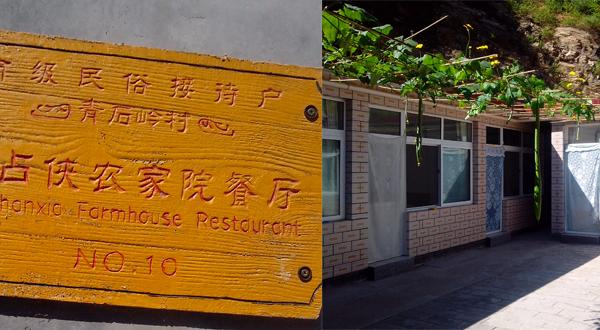 级民俗接待户
青石岭村
占侠农家院餐厅
hanxia Farmhouse Restaurant
NO.10